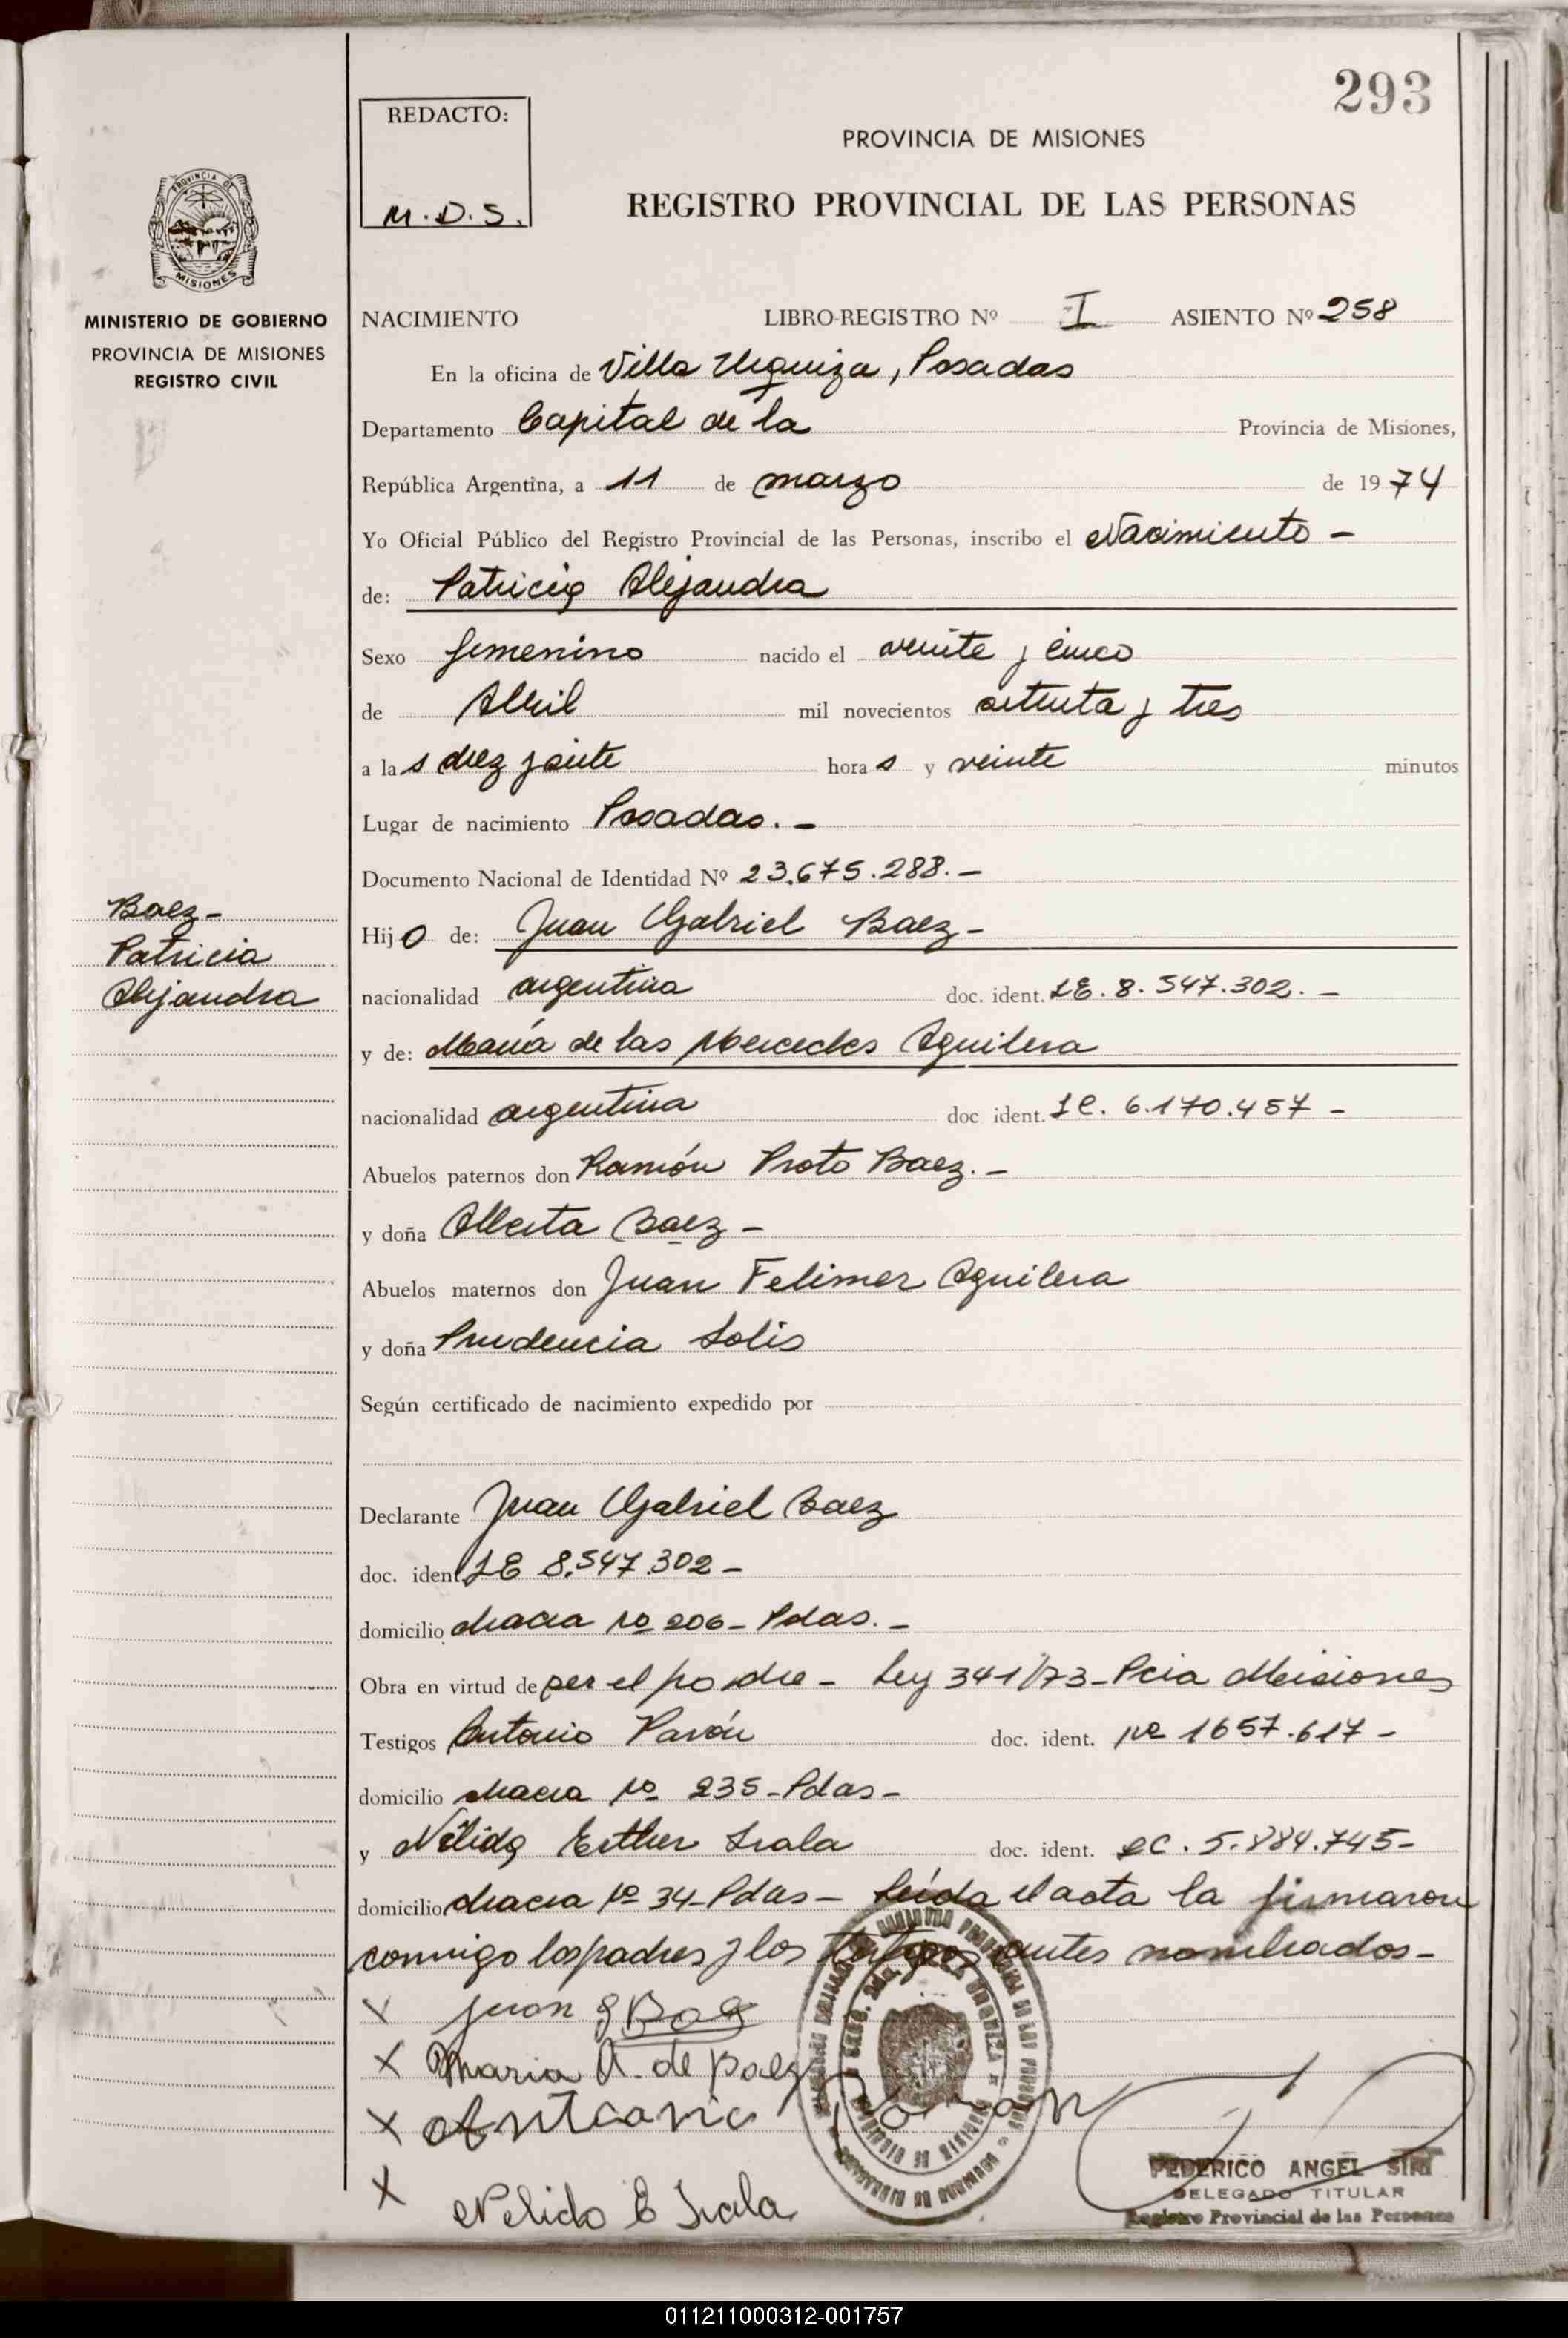 293
REDACTO:
M.D.S.
PROVINCIA DE MISIONES
REGISTRO PROVINCIAL DE LAS PERSONAS
PROVINCIA DE
MISIONES
MINISTERIO DE GOBIERNO
PROVINCIA DE MISIONES
REGISTRO CIVIL
NACIMIENTO LIBRO-REGISTRO Nº I ASIENTO Nº 258
En la oficina de Villa Urquiza, Posadas
Departamento Capital de la Provincia de Misiones,
República Argentina, a 11 de marzo de 1974
Yo Oficial Público del Registro Provincial de las Personas, inscribo el Nacimiento -
de: Patricia Alejandra
Sexo femenino nacido el veinte y cinco
de Abril mil novecientos setenta y tres
a las diez y siete horas y veinte minutos
Lugar de nacimiento Posadas. -
Documento Nacional de Identidad Nº 23.675.288. -
Baez -
Patricia
Alejandra
Hijo de: Juan Gabriel Baez -
nacionalidad argentina doc. ident. LE. 8.547.302. -
y de: María de las Mercedes Aguilera
nacionalidad argentina doc ident. LC. 6.170.457 -
Abuelos paternos don Ramón Proto Baez. -
y doña Alberta Baez -
Abuelos maternos don Juan Felimer Aguilera
y doña Prudencia Solis
Según certificado de nacimiento expedido por
Declarante Juan Gabriel Baez
doc. ident. LE 8.547.302 -
domicilio chacra Nº 206 - Pdas. -
Obra en virtud de per el padre - Ley 341/73 - Pcia Misiones
Testigos Antonio Pavón doc. ident. Nº 1657.617 -
domicilio chacra Nº 235 - Pdas -
y Nélida Esther Irala doc. ident. LC. 5.884.745 -
domicilio chacra Nº 34 - Pdas - leída el acta la firmaron
conmigo los padres y los testigos antes nombrados -
x Juan G Baez
x Maria A. de Baez
x Antonio Pavon
x Nelida E Irala
FEDERICO ANGEL SIRI
DELEGADO TITULAR
Registro Provincial de las Personas
011211000312-001757